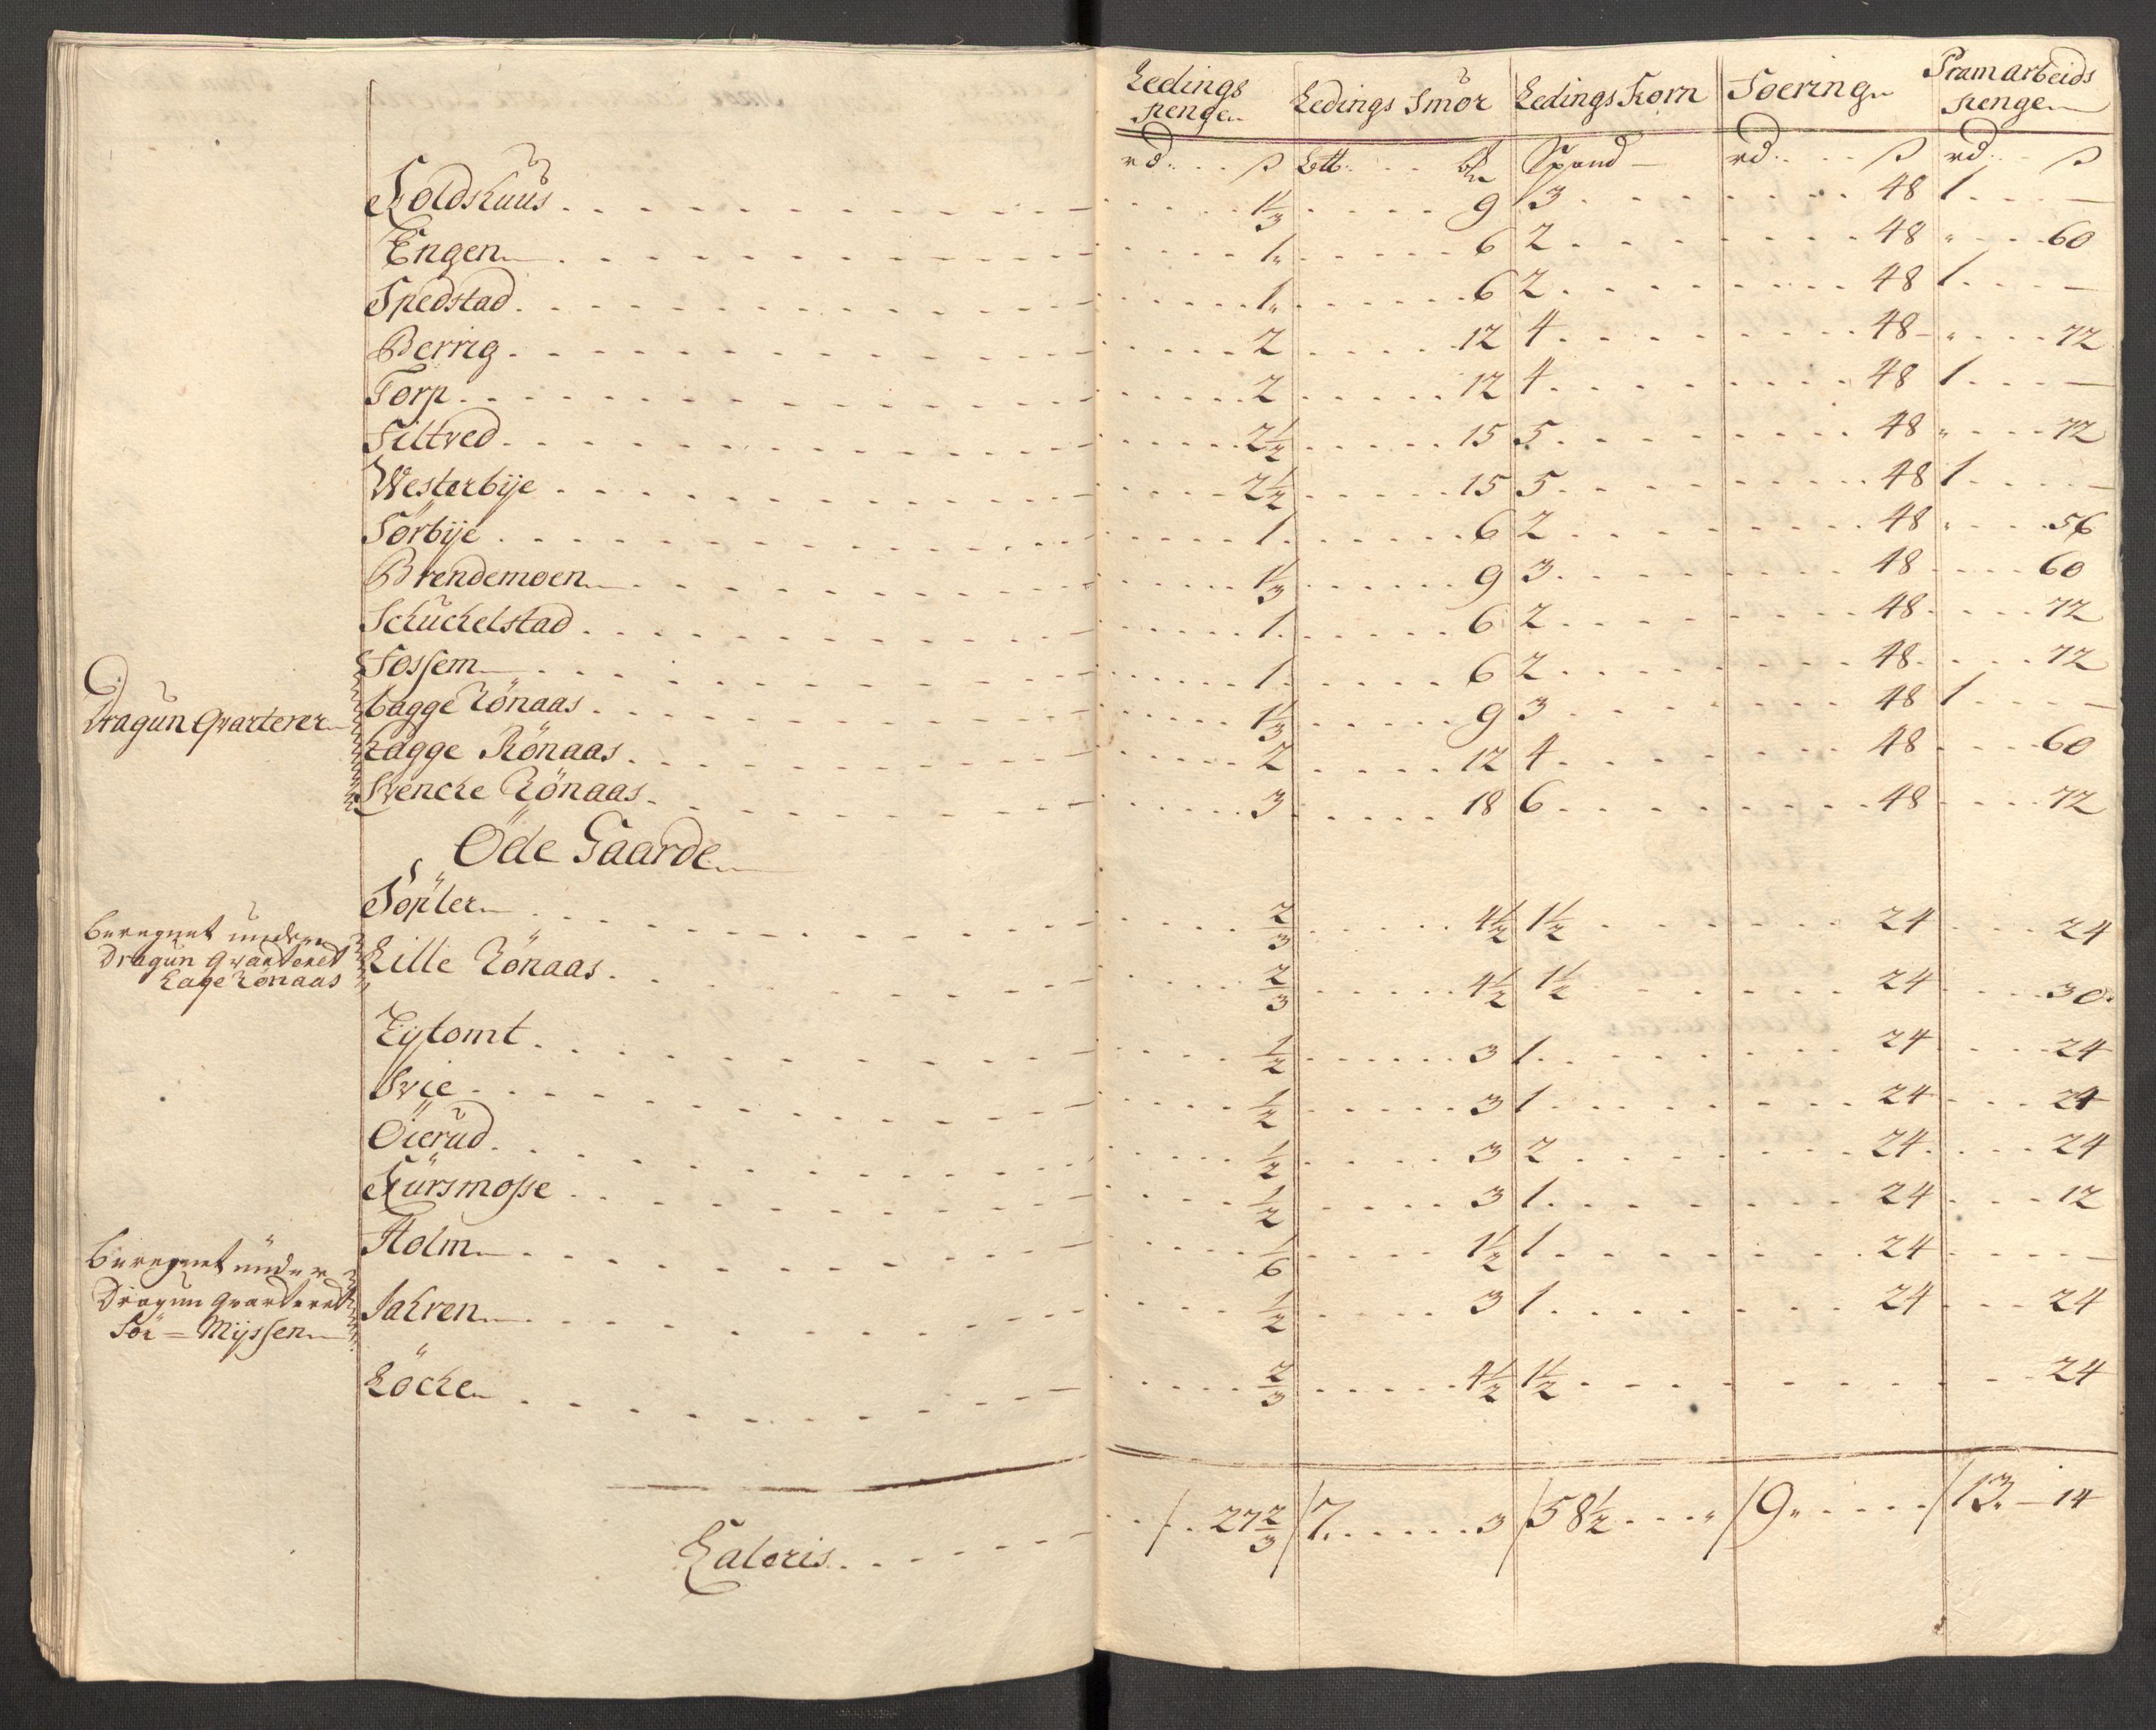 Ledings pengen | Ledings Smör | Ledings Korn | Foeringn | Pramarbeids pengen
rd: ß | Lb: | Spand | rd: ß | rd: ß
Koldshuus 1 1/3 | 9 | 3 | 48 | 1 —
Engen 1 | 6 | 2 | 48 | " 60
Spedstad 1 | 6 | 2 | 48 | 1 —
Berrig 2 | 12 | 4 | 48 | " 72
Torp 2 | 12 | 4 | 48 | 1 —
Tiltved 2 1/2 | 15 | 5 | 48 | " 72
Westerbije 2 1/2 | 15 | 5 | 48 | 1 —
Sörbije 1 | 6 | 2 | 48 | " 56
Brendemoen 1 1/3 | 9 | 3 | 48 | 60
Schuchelstad 1 | 6 | 2 | 48 | 72
Fossem 1 | 6 | 2 | 48 | 72
Dragun Qvarterer
bagge Rönaas 1 1/3 | 9 | 3 | 48 | 1 —
Lagge Rönaas 2 | 12 | 4 | 48 | 60
Svenche Rönaas 3 | 18 | 6 | 48 | 72
Öde Gaarde
Töpler 2/3 | 4 1/2 | 1 1/2 | 24 | 24
beregnet under
Dragun Qvarteret
Lage Rönaas
Lille Rönaas 2/3 | 4 1/2 | 1 1/2 | 24 | 30
Eytomt 1/2 | 3 | 1 | 24 | 24
Svie 1/2 | 3 | 1 | 24 | 24
Öierud 1/2 | 3 | 2 | 24 | 24
Kursmosse 1/2 | 3 | 1 | 24 | 12
Holm 1/6 | 1 1/2 | 1 | 24 | —
beregnet under
Dragun Qvarteret
Sör = Mÿssen
Jahren 1/2 | 3 | 1 | 24 | 24
Löchen 2/3 | 4 1/2 | 1 1/2 | 24
Lateris / 27 2/3 / 7 3 / 58 1/2 " / 9 " / 13 — 14